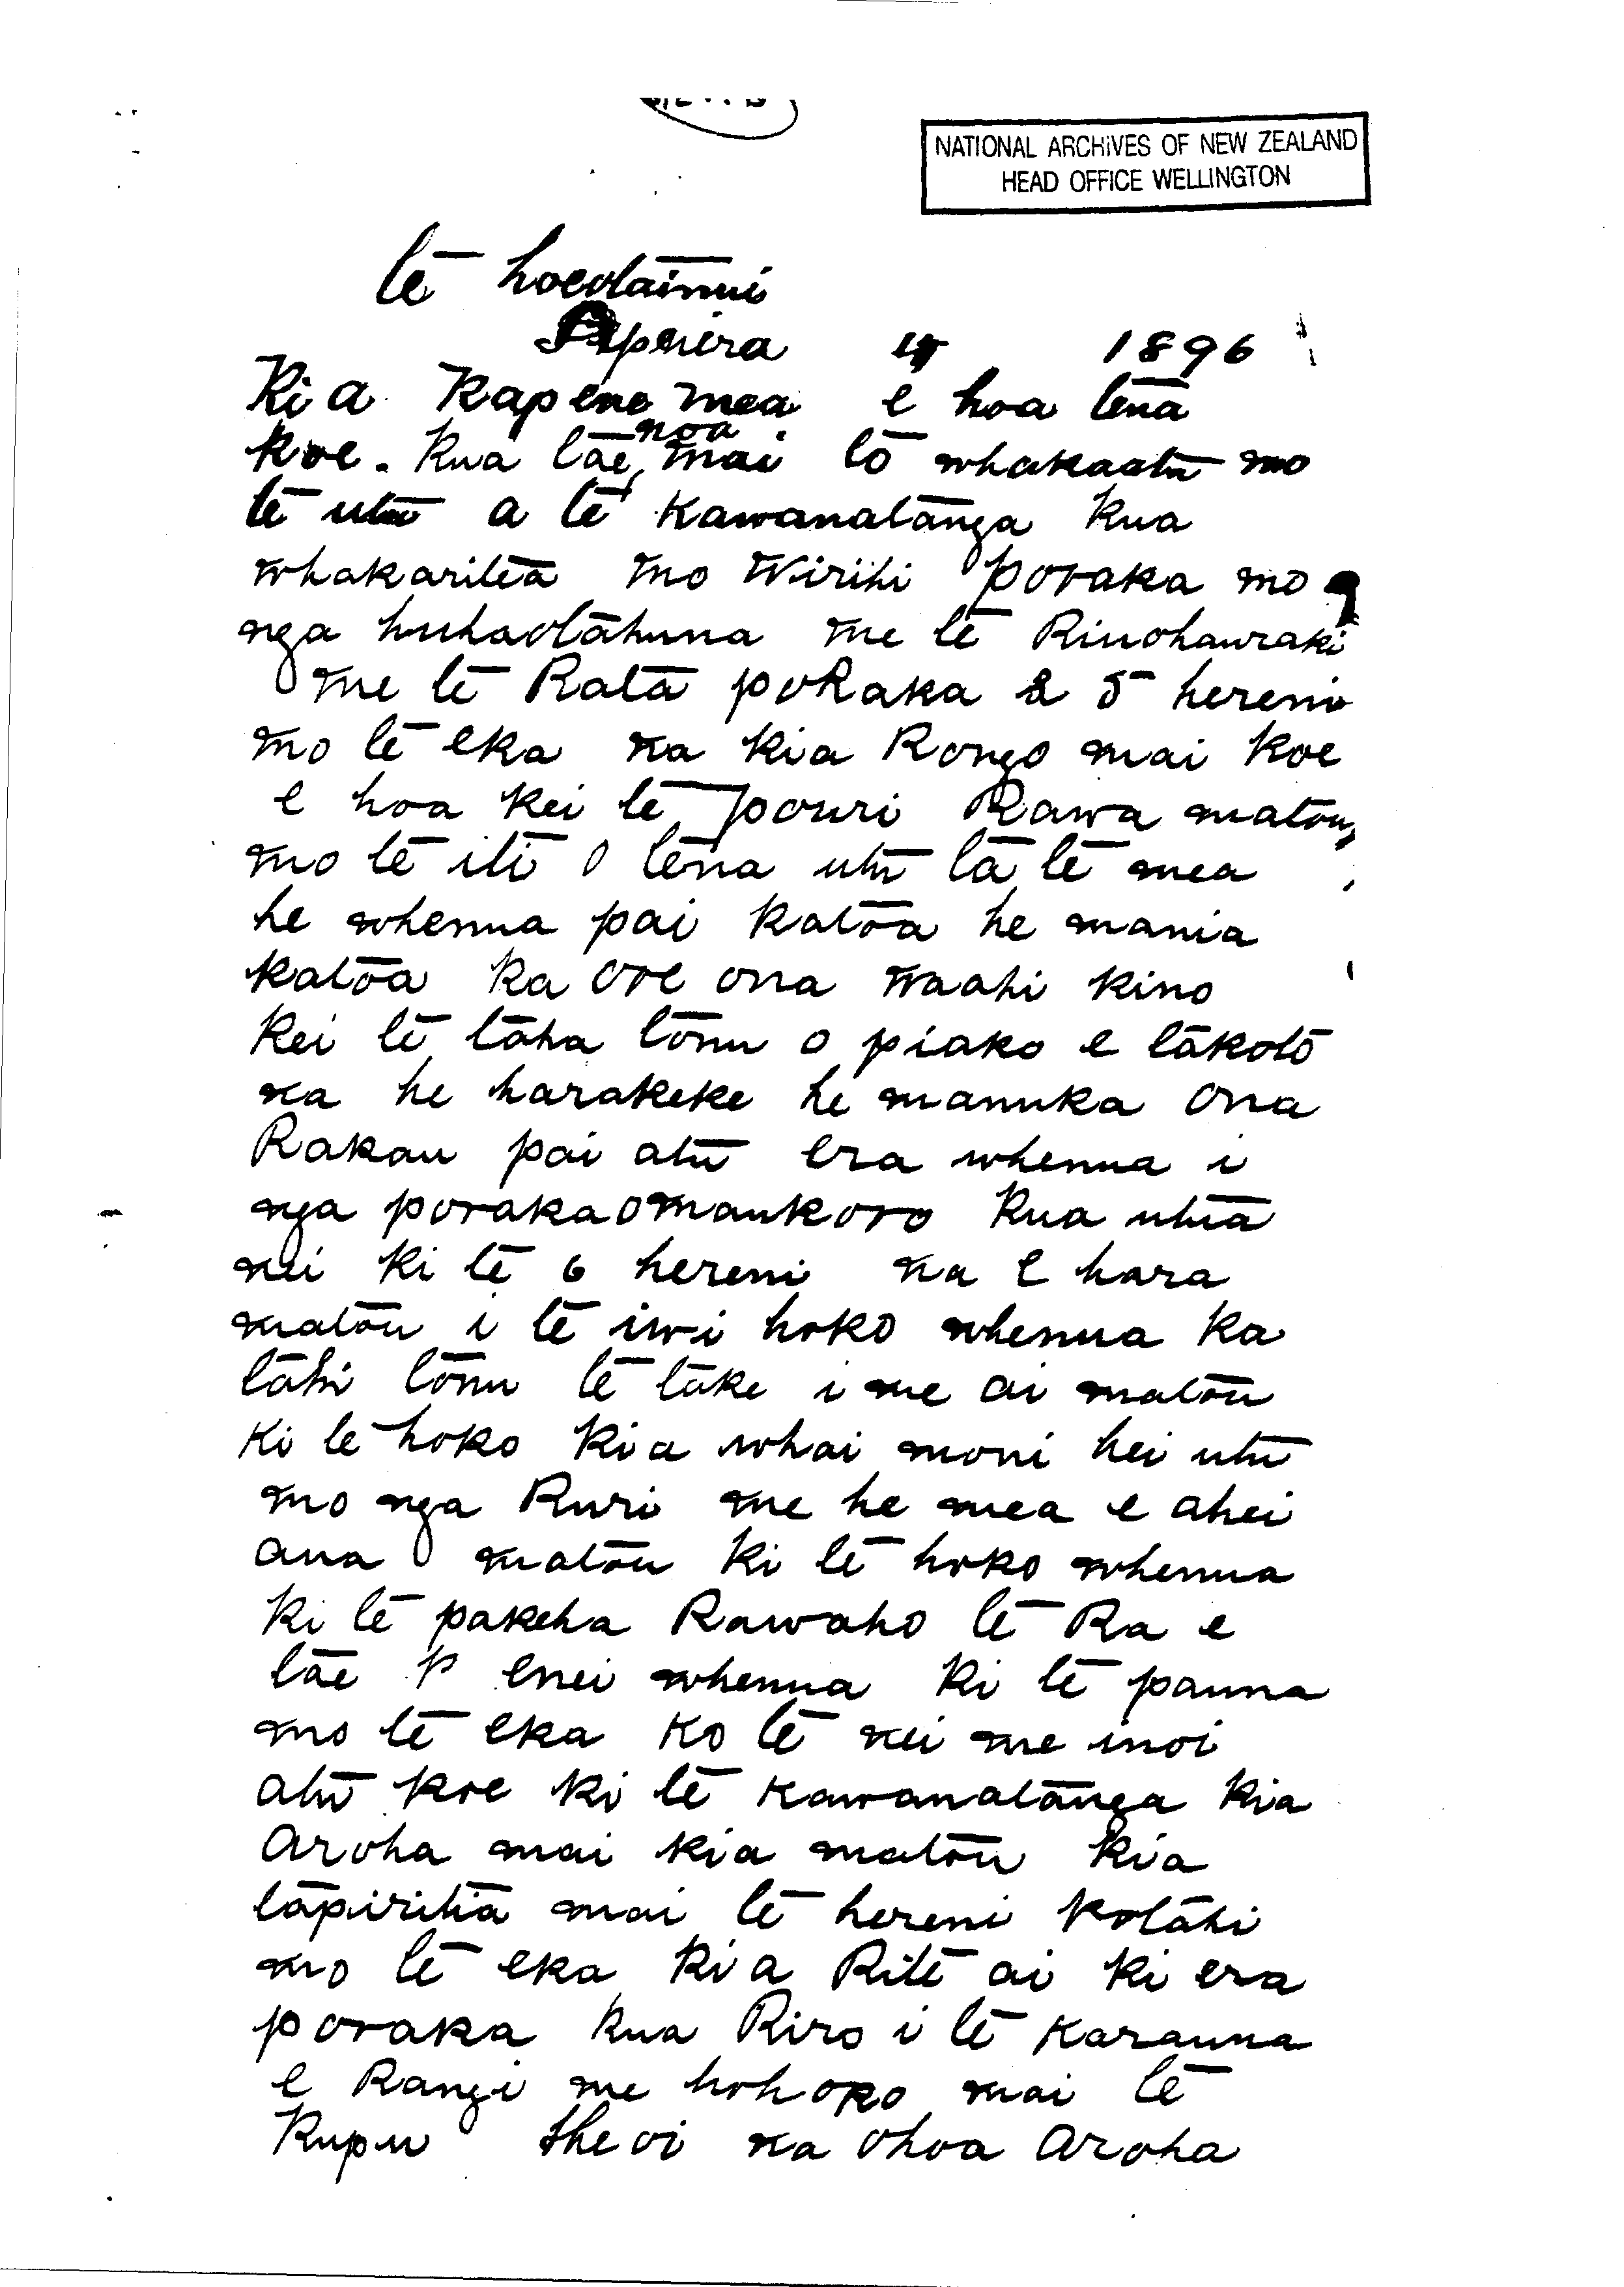 NATIONAL ARCHIVES OF NEW ZEALAND
HEAD OFFICE WELLINGTON
te hoeotainui
Apereira 4 1896
Ki a Kapene mea e hoa tena
koe. Kua tae noa mai to whakaatu mo
te utu a te Kawanatanga Kua
whakaritea mo Wirihi poraka mo
nga huhaotahuna me te Rinohauraki
me te Rata poRaka 2 5 hereni
mo te eka na kia Rongo mai koe
e hoa kei te pouri Rawa matou
mo te iti o tena utu ta te mea
he whenua pai katoa he mania
katoa ka ore ona waahi kino
kei te taha tonu o piako e takoto
na he harakeke he manuka ona
Rakau pai atu era whenua i
nga poraka o maukoro Kua utua
nei ki te 6 hereni na e hara
matou i te iwi hoko whenua ka
tahi tonu te take i me ai matou
Ki te hoko kia whai moni hei utu
mo nga Ruri me he mea e ahei
ana matou ki te hoko whenua
ki te pakeha Rawaho te Ra e
tae enei whenua ki te pauna
mo te eka Ko te nei me inoi
atu koe ki te Kawanatanga kia
Aroha mai kia matou kia
tapiritia mai te hereni kotahi
mo te eka kia Rite ai ki era
poraka kua Riro i te Karauna
e Rangi me hohoro mai te
Kupu heoi na ohoa Aroha